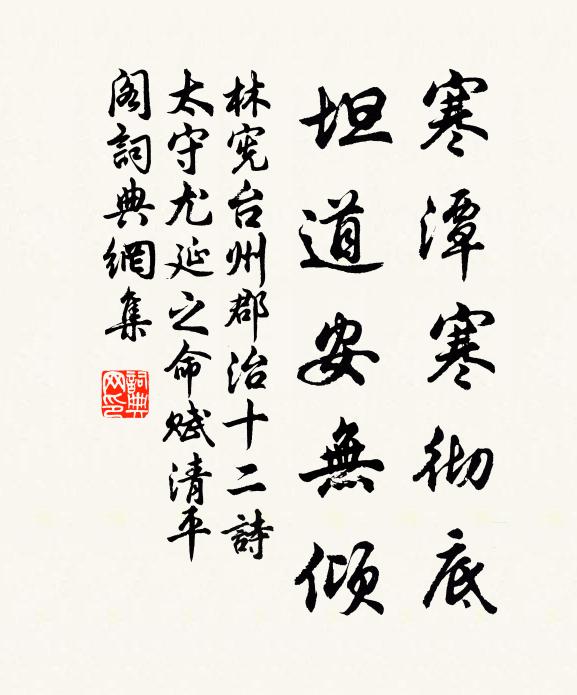 寒潭寒徹底
坦道安無傾
林宪台州郡治十二詩
太守尤延之命赋清平
阁詞典網集
詞典网印